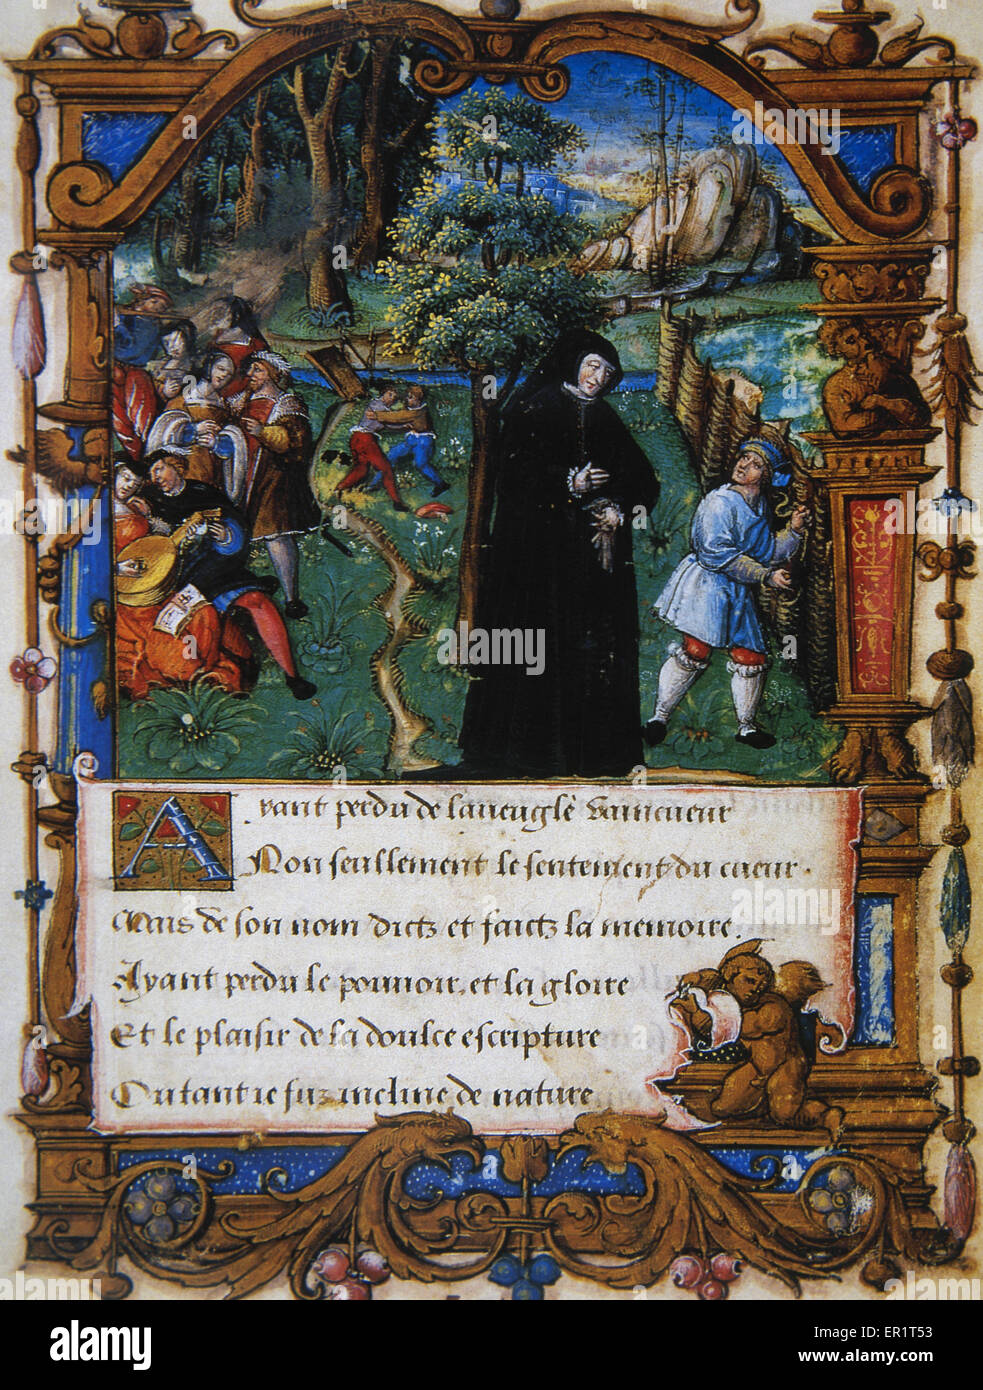 Ayant perdu de laueugle vaincueur
Non seullement le sentement du cueur.
Mais de son nom dictz et faictz la memoire.
Ayant perdu le pouuoir, et la gloire
Et le plaisir de la doulce escripture
Ou tant ie fuz incline de nature
alamy
alamy
alamy
alamy
Image ID: ER1T53
www.alamy.com